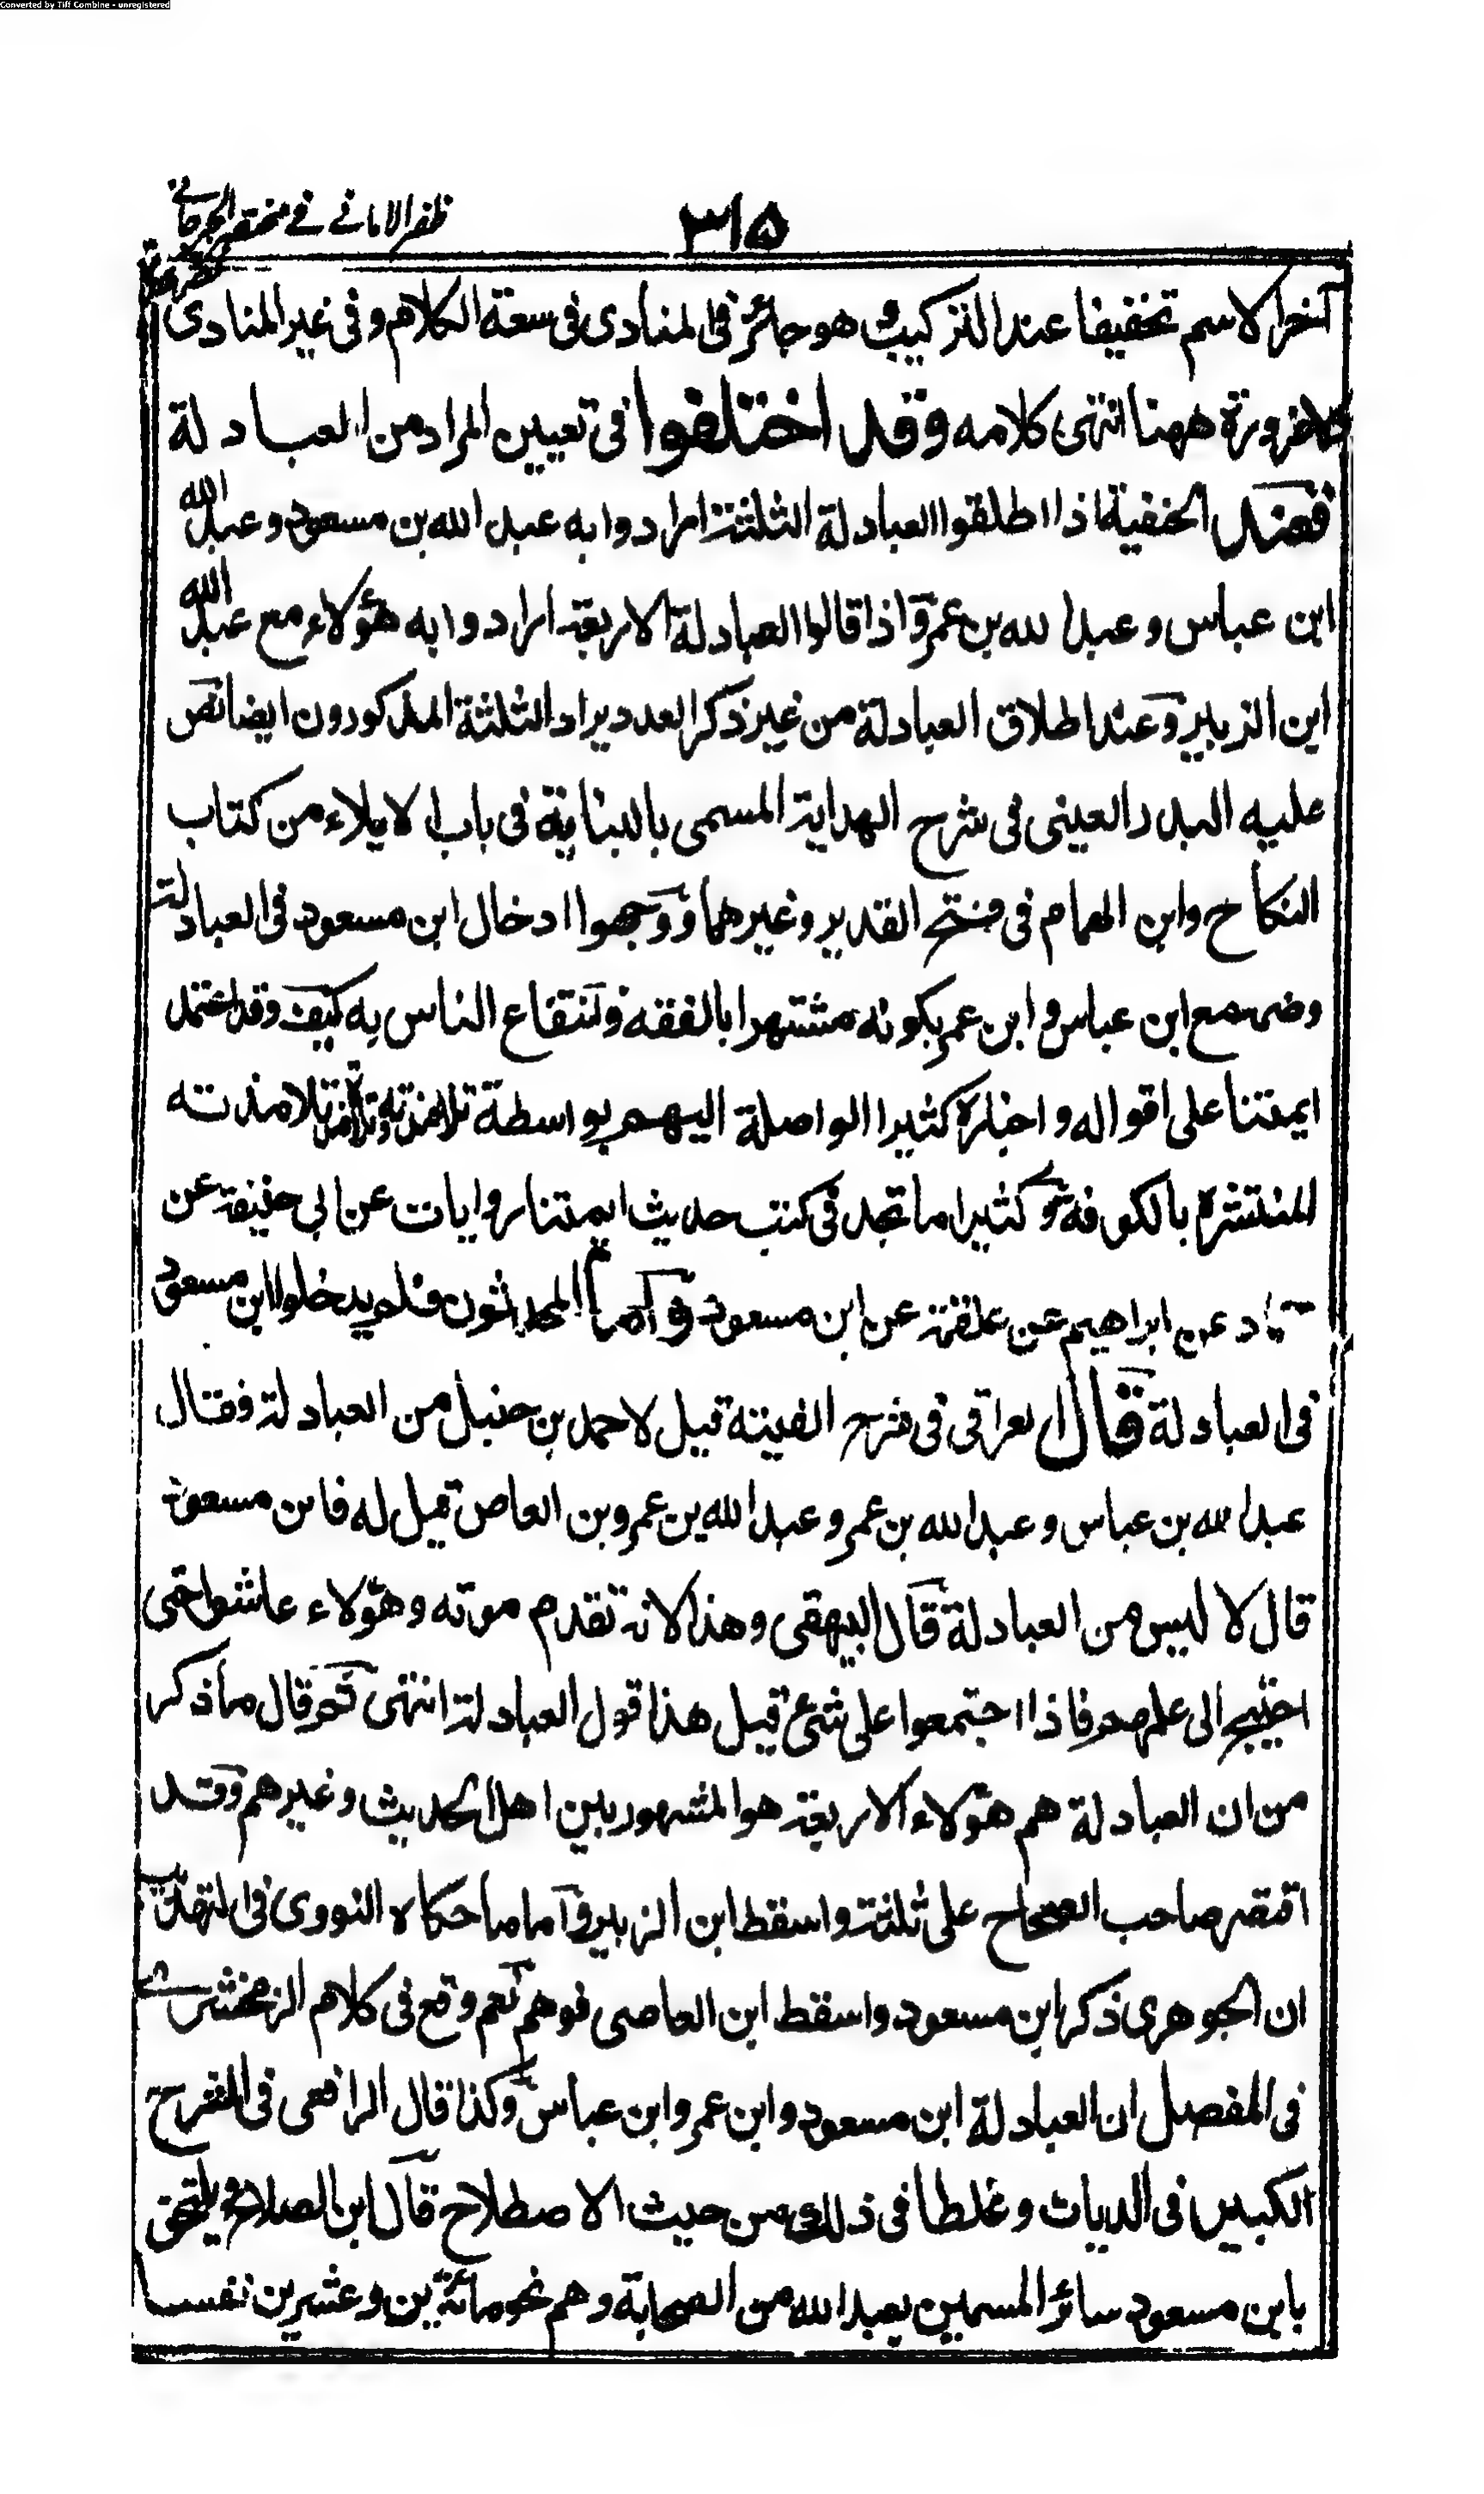 Converted by Tiff Combine - unregistered
٣١٥
ظفر الامانے فے مختصر الجرجانے
آخر الاسم تخفيفا عند التركيب وهو جائز فى المنادى فى سعة الكلام وفى غير المنادى
للضرورة ههنا انتهى كلامه وقد اختلفوا فى تعيين المراد من العبادلة
فعند الحنفية اذا اطلقوا العبادلة الثلثة ارادوا به عبد الله بن مسعود وعبد الله
ابن عباس وعبد الله بن عمر واذا قالوا العبادلة الاربعة ارادوا به هؤلاء مع عبد الله
ابن الزبير وعند اطلاق العبادلة من غير ذكر العدد يراد الثلثة المذكورون ايضا نص
عليه البدر العينى فى شرح الهداية المسمى بالبناية فى باب الايلاء من كتاب
النكاح وابن الهمام فى فتح القدير وغيرهما ووجهوا ادخال ابن مسعود فى العبادلة
وضمه مع ابن عباس وابن عمر بكونه مشتهرا بالفقه وانتفاع الناس به كيف وقد اعتمد
ايمتنا على اقواله واخباره كثيرا الواصلة اليهم بواسطة تلامذته وتلامذة تلامذته
المنتشرة بالكوفة وكثيرا ما تجد فى كتب حديث ايمتنا روايات عن ابى حنيفة عن
حماد عن ابراهيم عن علقمة عن ابن مسعود واما المحدثون فلم يدخلوا ابن مسعود
فى العبادلة قال العراقى فى شرح الفيته قيل لاحمد بن حنبل من العبادلة فقال
عبد الله بن عباس وعبد الله بن عمر وعبد الله بن عمرو بن العاص قيل له فابن مسعود
قال لا ليس من العبادلة قال البيهقى وهذا لانه تقدم موته وهؤلاء عاشوا حتى
احتيج الى علمهم فاذا اجتمعوا على شئ قيل هذا قول العبادلة انتهى ثم قال ما ذكر
من ان العبادلة هم هؤلاء الاربعة هو المشهور بين اهل الحديث وغيرهم وقد
اقتصر صاحب الصحاح على ثلثة واسقط ابن الزبير واما ما حكاه النووى فى التهذيب
ان الجوهرى ذكر ابن مسعود واسقط ابن العاصى فوهم نعم وقع فى كلام الزمخشرے
فى المفصل ان العبادلة ابن مسعود وابن عمر وابن عباس وكذا قال الرافعى فى الشرح
الكبير فى الديات وغلطا فى ذلك من حيث الاصطلاح قال ابن الصلاح ويلتحق
بابن مسعود سائر المسمين بعبد الله من الصحابة وهم نحو مائتين وعشرين نفسا